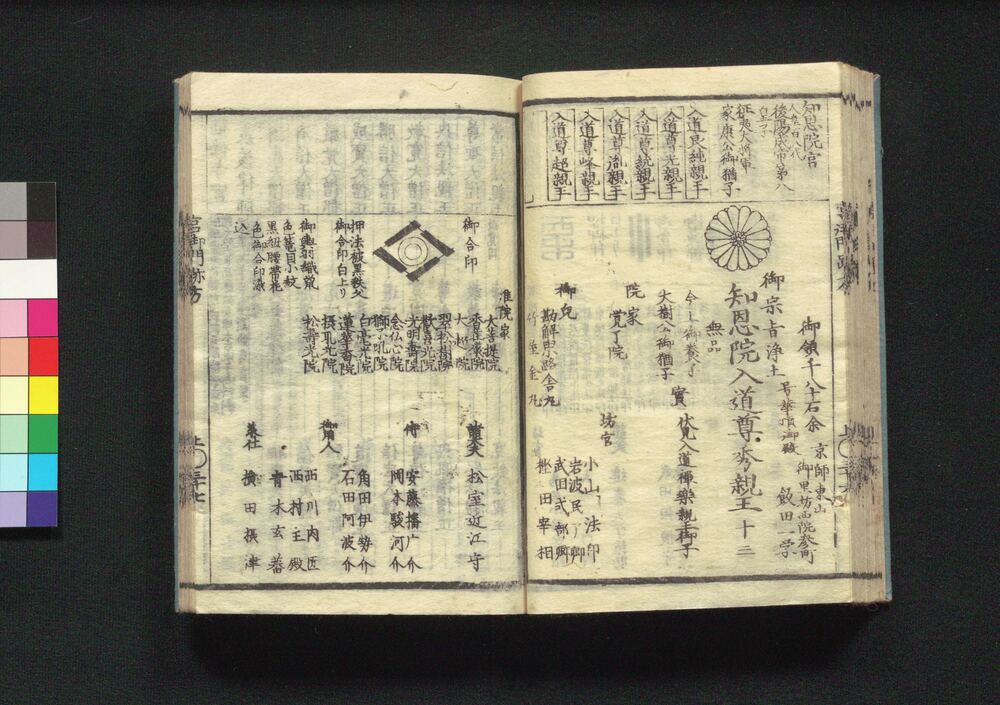 知恩院宮
人皇百八代
後陽成帝第八
皇子
征夷大将軍
家康公御猶子
入道良純親王
入道尊光親王
入道尊統親王
入道尊胤親王
入道尊峰親王
入道尊超親王
御領千八十石余
京師東山
御里坊西院参町
飯田一学
号華頂御殿
御宗旨浄土
知恩院入道尊秀親王十三
無品
今上御養子
大樹公御猶子
實伏見入道禅樂親王御子
院家
覚了院
坊官
小山法印
岩波民部卿
武田式部卿
樫田宰相
御児
勘解由小路舎丸
竹屋金丸
准院家
大菩提院
香星衆院
大超院
翠松樹院
歓喜光院
光明壽院
念仏心院
獅子吼院
白毫光院
蓮華香院
摂取光院
松壽光院
御合印
押法被黒秩父
御合印白上り
御輿羽織鼠
色竜目小紋
黒紐腰帯花
色御合印濃
込
諸大夫
松室近江守
侍
安藤播磨介
岡本駿河介
角田伊勢介
石田阿波介
御用人
西川内匠
西村主殿
青木玄蕃
兼仕
横田摂津
宮御門跡方
上〇三十七